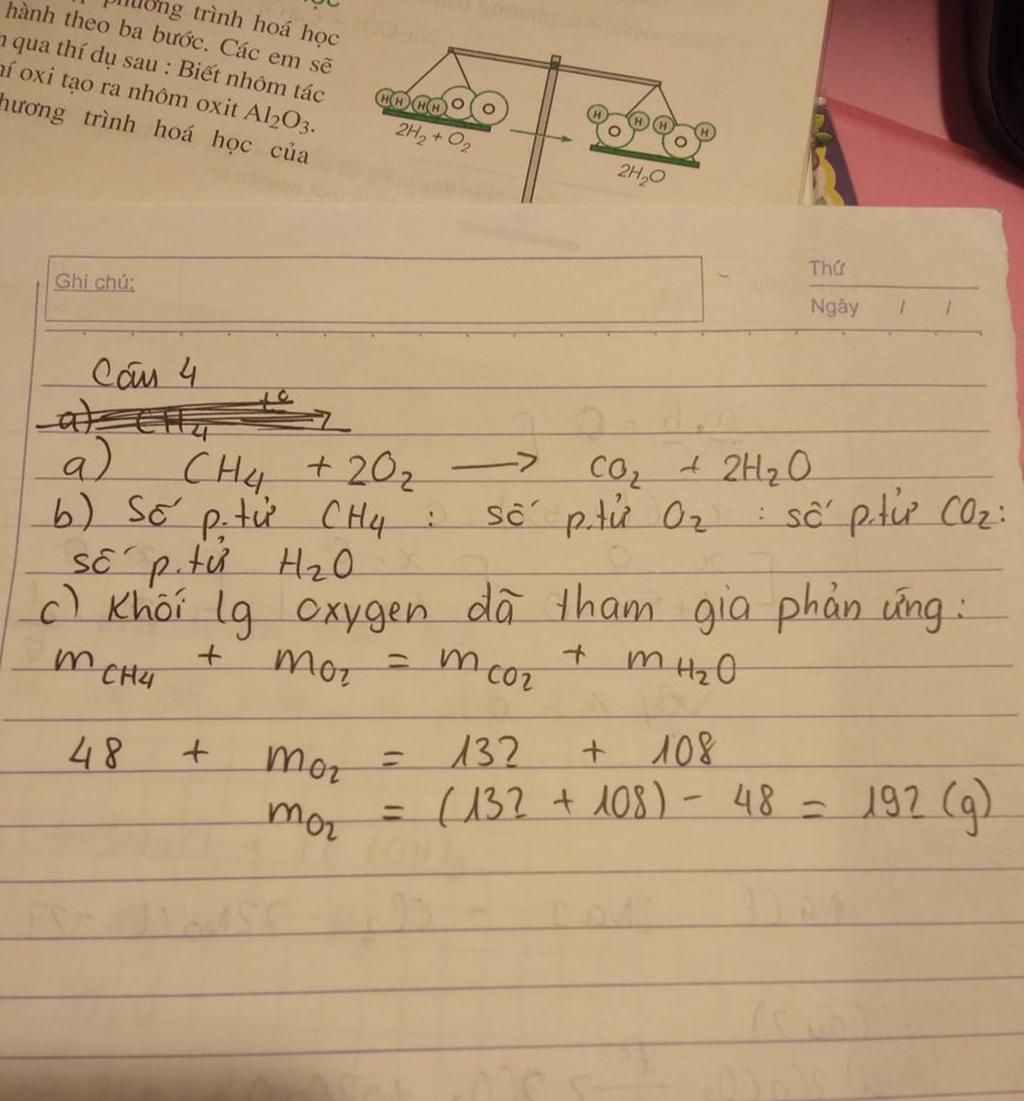 phương trình hoá học
hành theo ba bước. Các em sẽ
qua thí dụ sau : Biết nhôm tác
oxi tạo ra nhôm oxit Al₂O₃.
phương trình hoá học của
H H H H O O
2H₂ + O₂
H O H H O H
2H₂O
Ghi chú:
Thứ
Ngày / /
Câu 4
a) CH₄ t°
a) CH₄ + 2O₂ → CO₂ + 2H₂O
b) Số p.tử CH₄ : số p.tử O₂ : số p.tử CO₂:
số p.tử H₂O
c) Khối lg oxygen đã tham gia phản ứng:
m CH₄ + m O₂ = m CO₂ + m H₂O
48 + m O₂ = 132 + 108
m O₂ = (132 + 108) - 48 = 192 (g)